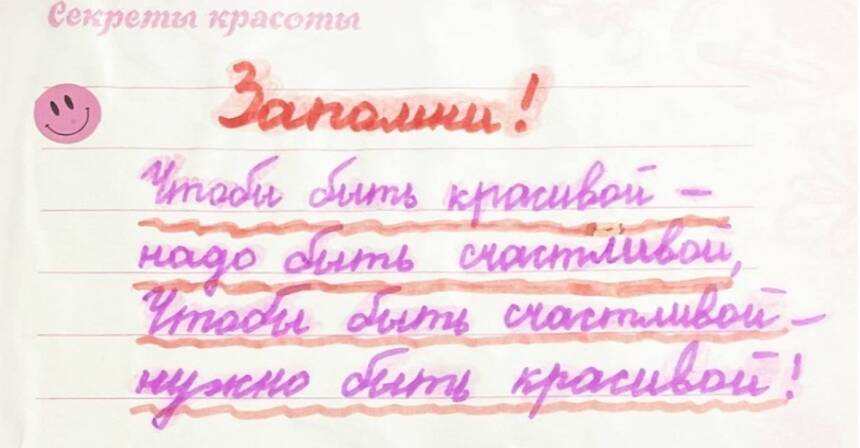 Секреты красоты
Запомни!
Чтобы быть красивой –
надо быть счастливой,
Чтобы быть счастливой –
нужно быть красивой!